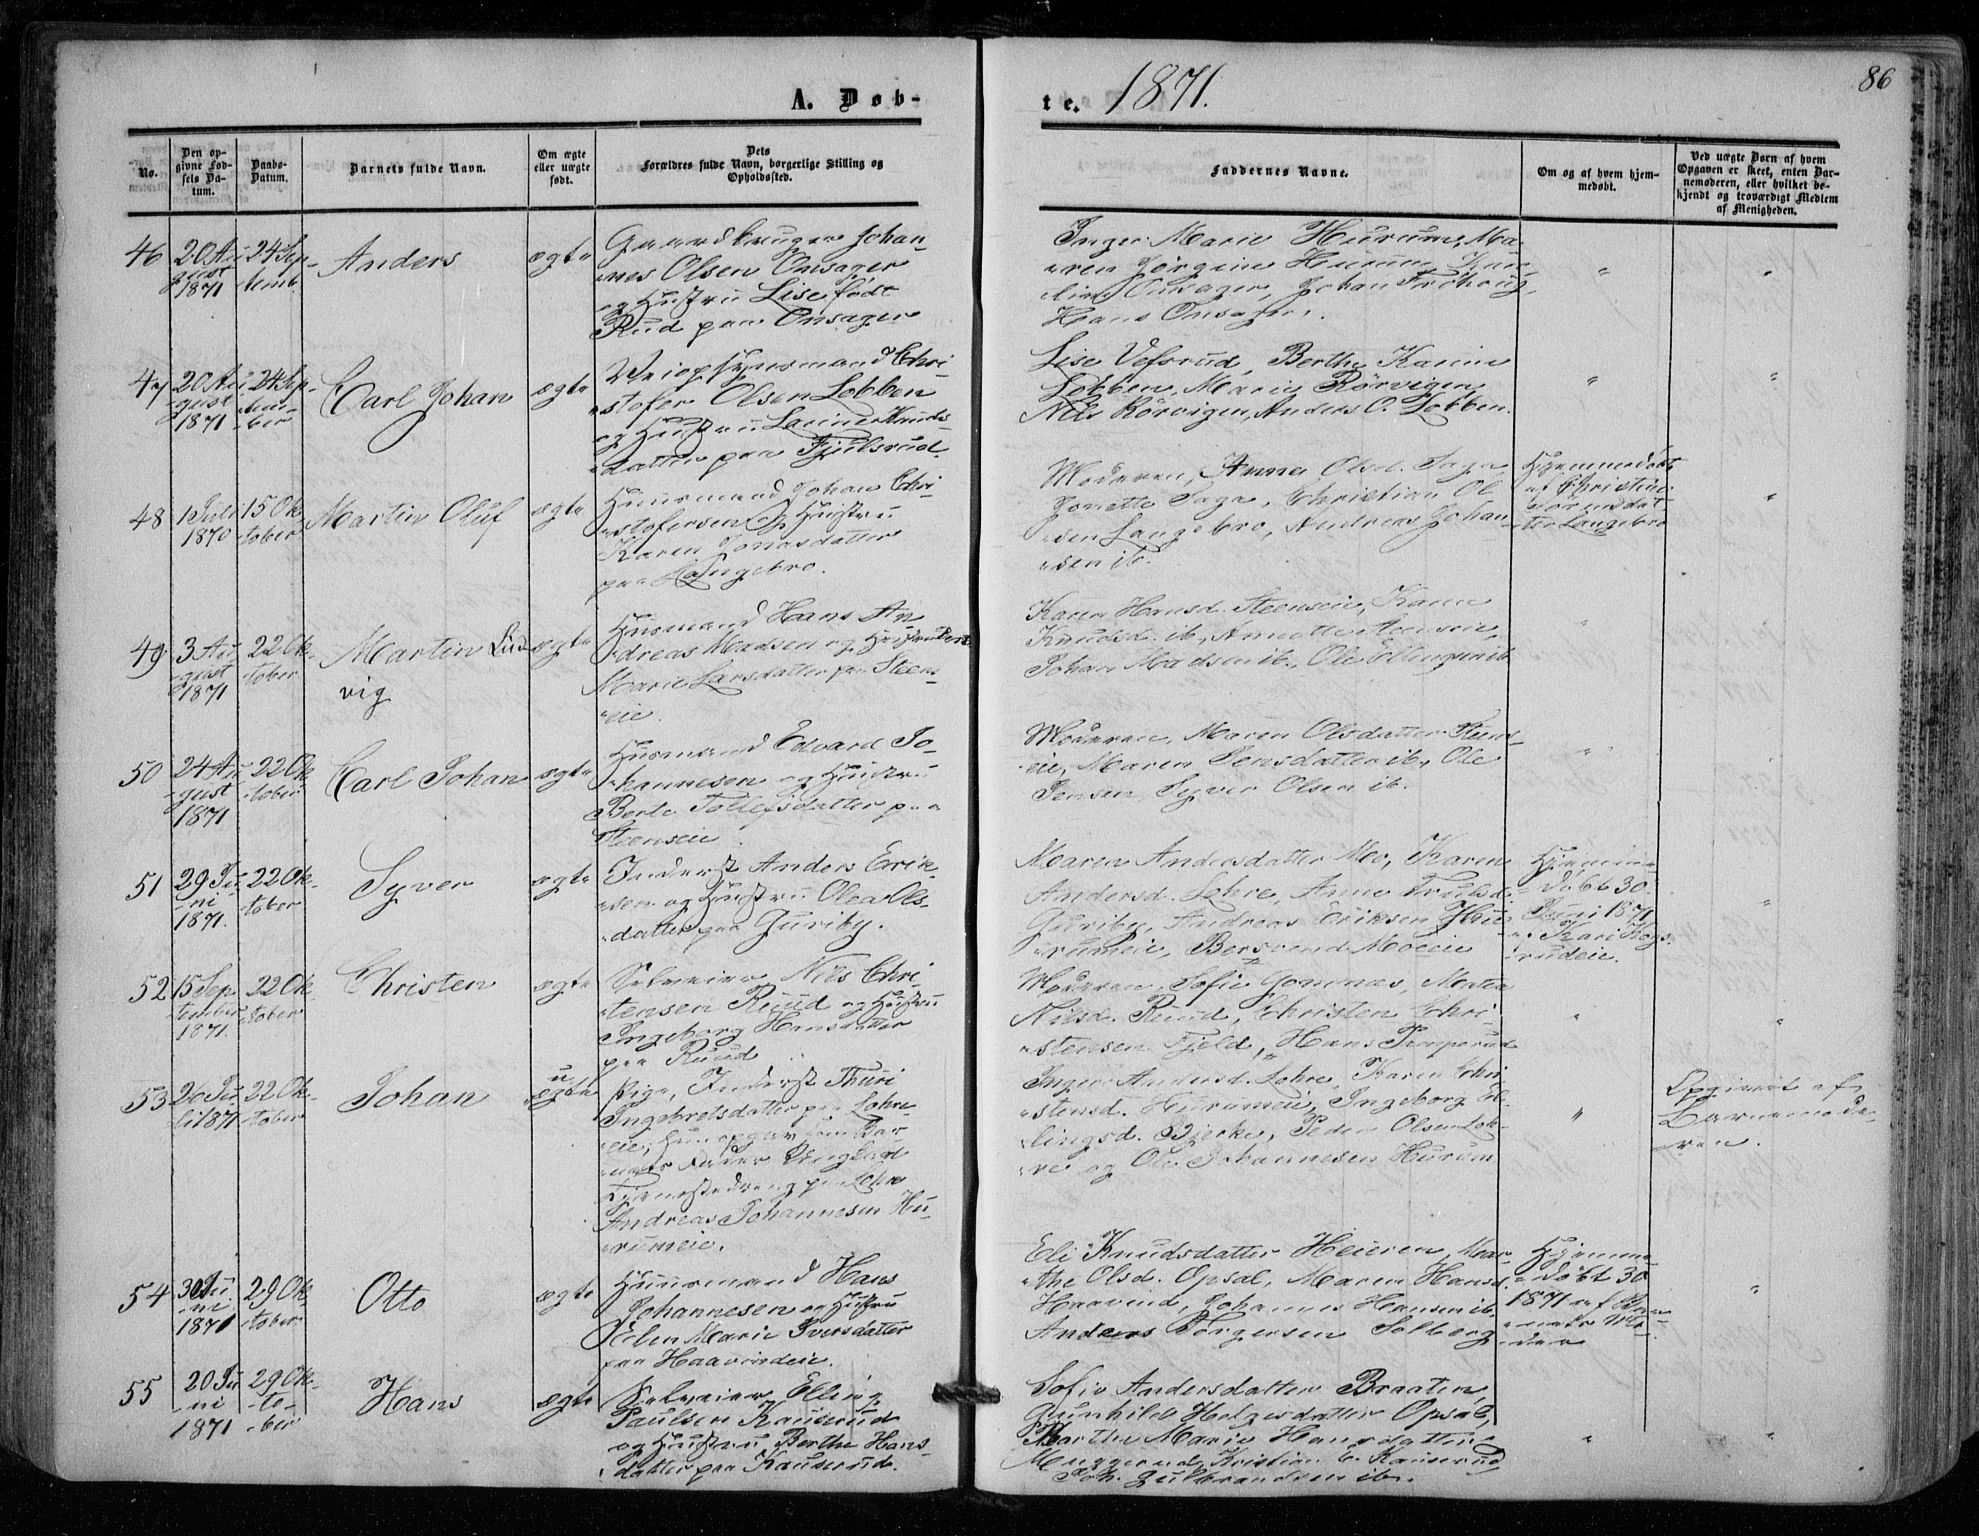 86
A. Døb-
te. 1871.
No.
Den op-
givne Fød-
sels Da-
tum.
Daabs-
Datum.
Barnets fulde Navn.
Om ægte
eller uægte
født.
Dets
Forældres fulde Navn, borgerlige Stilling og
Opholdssted.
Faddernes Navne.
Om og af hvem hjem-
medøbt.
Ved uægte Børn af hvem
Opgaven er skeet, enten Bar-
nemoderen, eller hvilket be-
kjendt og troværdigt Medlem
af Menigheden.
46
20 Au-
gust
1871
24 Sep-
temb.
Anders
ægte
Gaardbruger Johan-
nes Olsen Onsager
og Hustru Lise født
Rud paa Onsager
Inger Marie Hurum, Ma-
ren Jørgine Hurum, Kare-
line Onsager, Johan Frøhoug,
Hans Onsager.
"
"
47
20 Au-
gust
1871
24 Sep-
tem-
ber
Carl Johan
ægte
Veiopsynsmand Chri-
stofer Olsen Lobben
og Hustru Larine Knuds-
datter paa Fjulsrud
Lise Vesrud, Berthe Karine
Lobben, Marie Rørvigen,
Nils Rørvigen, Anders O. Lobben.
"
"
48
1 Juli
1870
15 Ok-
tober
Martin Oluf
ægte
Huusmand Johan Chri-
stofersen og Hustru
Karen Jonasdatter
paa Langebro.
Moderen, Anna Olsd. Saga
Jonette Saga, Christian Ol-
sen Langebro, Andreas Johan-
sen ib.
Hjemmedøbt
af Christine
datter Langebro
"
49
3 Au-
gust
1871
22 Ok-
tober
Martin Lud-
vig
ægte
Husmand Hans An-
dreas Madsen og Hustru Bert
Marie Larsdatter paa Steens-
eie.
Karen Hansd. Steenseie, Karen
Knudsd. ib, Annette Steenseie,
Johan Madsen ib, Ole Ellingsen ib
"
"
50
24 Au-
gust
1871
22 Ok-
tober
Carl Johan
ægte
Husmand Edvard Jo-
hannesen og Hustru
Berte Tollefsdatter paa
Steenseie.
Moderen, Maren Olsdatter Steens-
eie, Maren Jensdatter ib, Ole
Jensen Syver Olsen ib.
"
51
29 Ju-
ni
1871.
22 Ok-
tober
Syver
ægte
Inderst Anders Erik-
sen og Hustru Olea Ols-
datter paa Guriby.
Maren Andersdatter Mo, Karen
Andersd. Lohre, Anne Trulsd.
Guriby, Andreas Eriksen Hu-
rumeie, Bersvend Moeeie
Hjemme-
døbt 30
Juni 1871
af Kari Hogs-
rudeie.
"
52
15 Sep-
tember
1871.
22 Ok-
tober
Christen
ægte
Selveier Nils Chri-
stensen Ruud og Hustru
Ingeborg Hansdatter
paa Ruud
Moderen, Sofie Gomnæs, Marte
Nilsd. Ruud, Christen Chri-
stensen Fjeld, Hans
"
"
53
26 Ju-
li 1871
22 Ok-
tober
Johan
u
ægte
Pige, Inderst Thuri
Ingebretsdatter paa Lohre-
eie, Hun opgav som Bar-
nets Fader Ungkarl
Tjenestedreng paa Lohre
Andreas Johannesen Hu-
rumeie.
Inger Andersd. Lohre, Karen Chri-
stensd. Hurumeie, Ingeborg El-
lingsd. Bjerke, Peder Olsen Loh-
re og Ole Johannesen Hurum
"
Opgivet af
Barnemode-
ren.
54
30 Ju-
ni
1871
29 Ok-
tober
Otto
ægte
Huusmand Hans
Johannesen og Hustru
Elen Marie Iversdatter
paa Haavindeie.
Eli Knudsdatter Heieren, Mar-
the Olsd. Opsal, Maren Hansd.
Haavind, Johannes Hansen ib,
Anders Torgersen Solberg
Hjemme-
døbt 30
1871 af Bar-
nets Mo-
der
"
55
20 Ju-
ni
1871
29 Ok-
to-
ber
Hans
ægte
Selveier Elling
Paulsen Kauserud
og Hustru Berthe Hans-
datter paa Kauserud.
Sofie Andersdatter Braaten,
Gunhild Helgesdatter Opsal,
Marthe Marie Hansdatter
Muggerud, Kristian C. Kauserud,
Joh. Gulbrandsen ib.
"
"